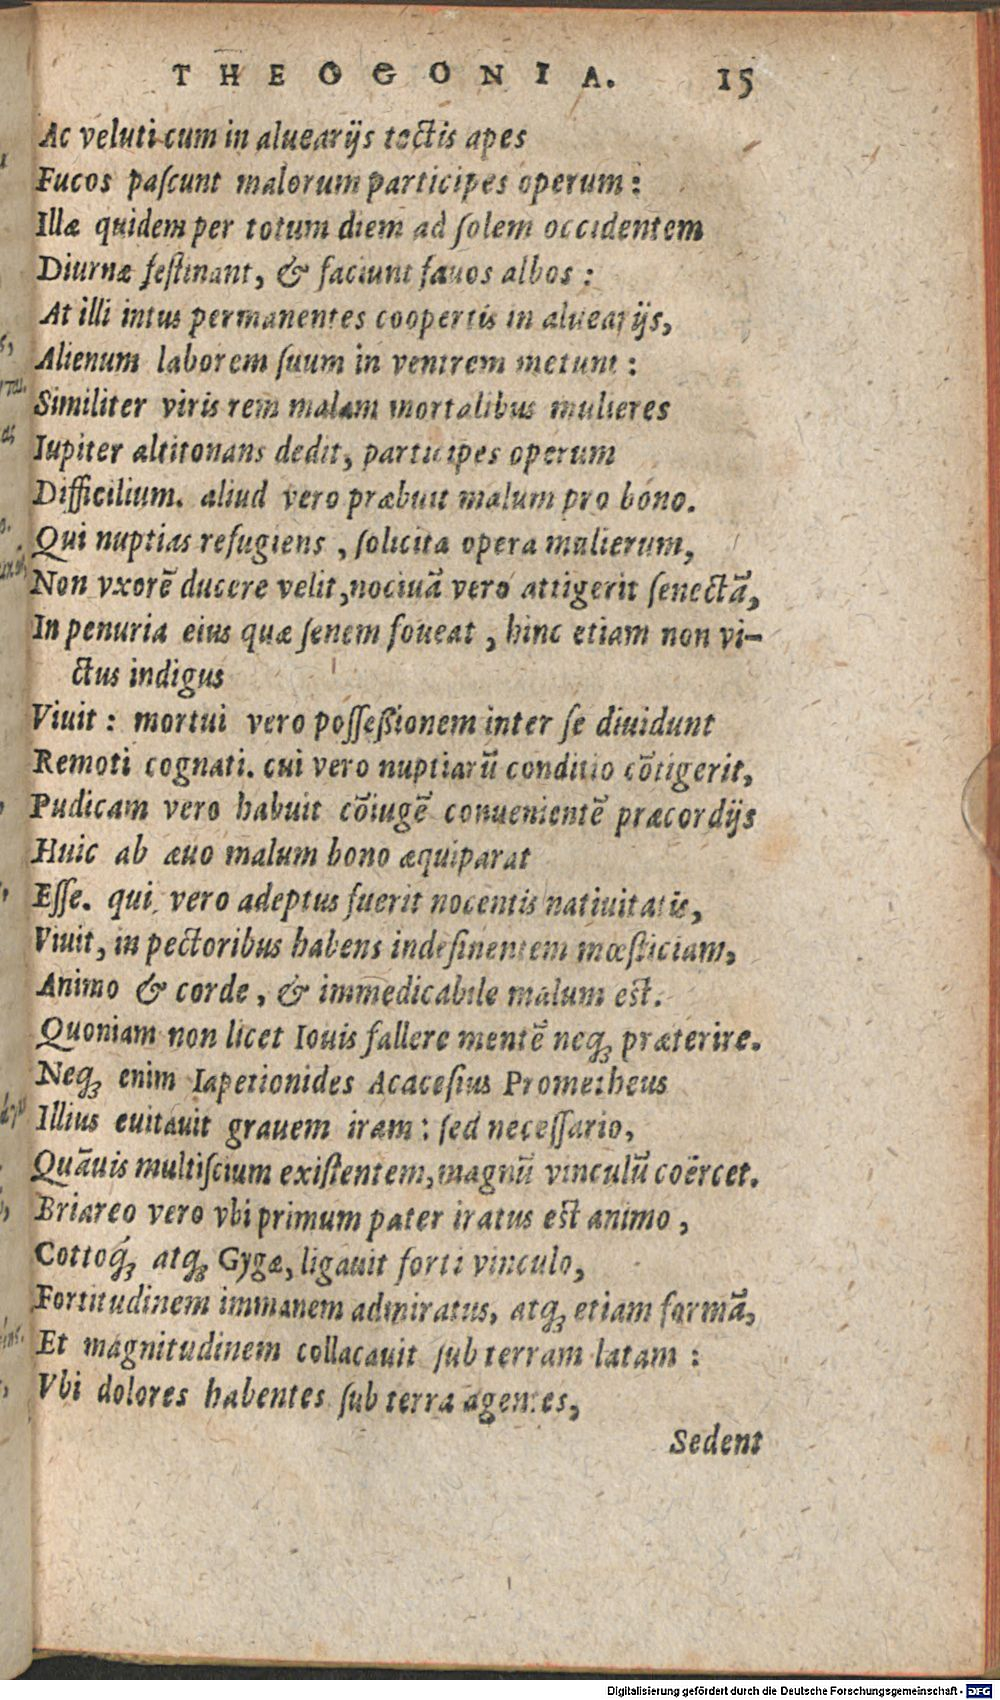 THEOGONIA. 15
Ac veluti cum in aluearijs tectis apes
Fucos paſcunt malorum participes operum:
Illæ quidem per totum diem ad ſolem occidentem
Diurnæ feſtinant, & faciunt fauos albos:
At illi intus permanentes coopertis in aluearijs,
Alienum laborem ſuum in ventrem metunt:
Similiter viris rem malam mortalibus mulieres
Iupiter altitonans dedit, participes operum
Difficilium. aliud vero præbuit malum pro bono.
Qui nuptias refugiens, ſolicita opera mulierum,
Non vxorē ducere velit, nociuā vero attigerit ſenectā,
In penuria eius quæ ſenem foueat, hinc etiam non vi-
ctus indigus
Viuit: mortui vero poſſeßionem inter ſe diuidunt
Remoti cognati. cui vero nuptiarū conditio cōtigerit,
Pudicam vero habuit cōiugē conuenientē præcordijs
Huic ab æuo malum bono æquiparat
Eſſe. qui vero adeptus fuerit nocentis natiuitatis,
Viuit, in pectoribus habens indeſinentem mœſticiam,
Animo & corde, & immedicabile malum est.
Quoniam non licet Iouis fallere mentē neqꝫ præterire.
Neqꝫ enim Iapetionides Acaceſius Prometheus
Illius euitauit grauem iram: ſed neceſſario,
Quāuis multiſcium exiſtentem, magnū vinculū coërcet.
Briareo vero vbi primum pater iratus est animo,
Cottoqꝫ atqꝫ Gygæ, ligauit forti vinculo,
Fortitudinem immanem admiratus, atqꝫ etiam formā,
Et magnitudinem collacauit ſub terram latam:
Vbi dolores habentes ſub terra agentes,
Sedent
Digitalisierung gefördert durch die Deutsche Forschungsgemeinschaft - DFG